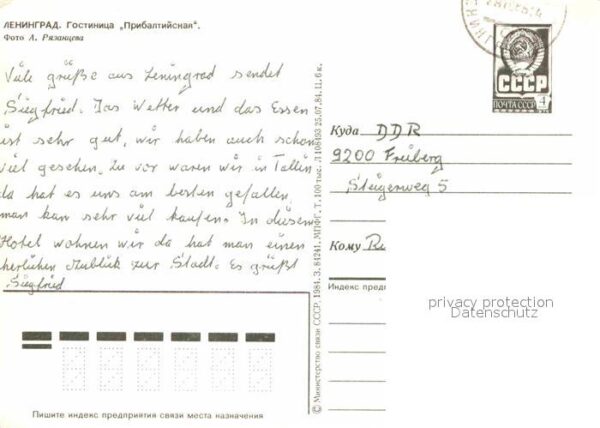 ЛЕНИНГРАД. Гостиница „Прибалтийская“.
Фото А. Рязанцева
Viele grüße aus Leningrad sendet
Siegfried. Das Wetter und das Essen
ist sehr gut, wir haben auch schon
viel gesehen. Zu vor waren wir in Tallin
da hat es uns am besten gefallen,
man kann sehr viel kaufen. In diesem
Hotel wohnen wir da hat man einen
herlichen Anblick zur Stadt. Es grüßt
Siegfried
Пишите индекс предприятия связи места назначения
© Министерство связи СССР, 1984. З. 84241. МПФГ. Т. 100 тыс. Л 108493 25.07.84. Ц. 6 к.
СССР
ПОЧТА СССР
4
Куда DDR
9200 Freiberg
Steigerweg 5
Кому
Индекс
privacy protection
Datenschutz